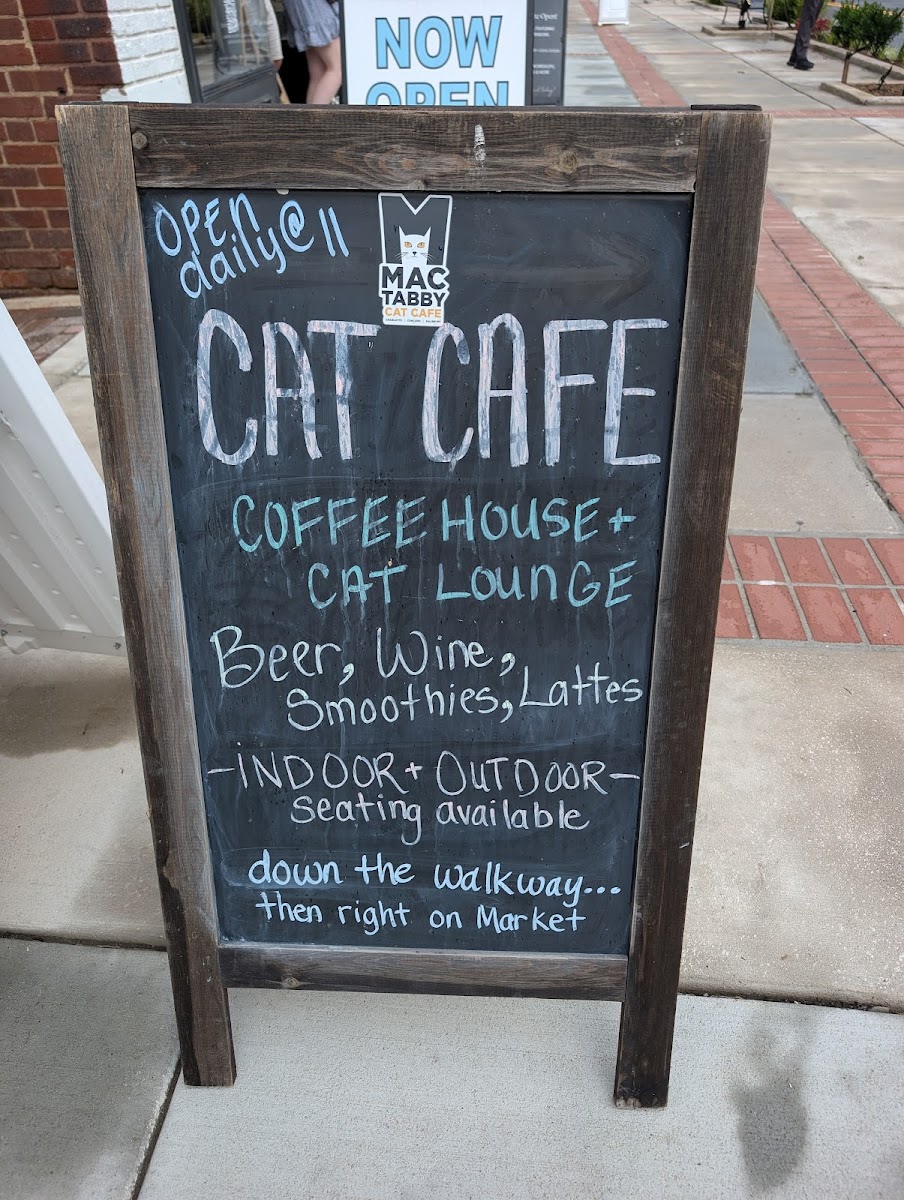 NOW
OPEN
OPEN
daily@11
MAC
TABBY
CAT CAFE
CAT CAFE
COFFEE HOUSE+
CAT LOUNGE
Beer, Wine,
Smoothies, Lattes
-INDOOR+ OUTDOOR-
seating available
down the walkway...
then right on Market